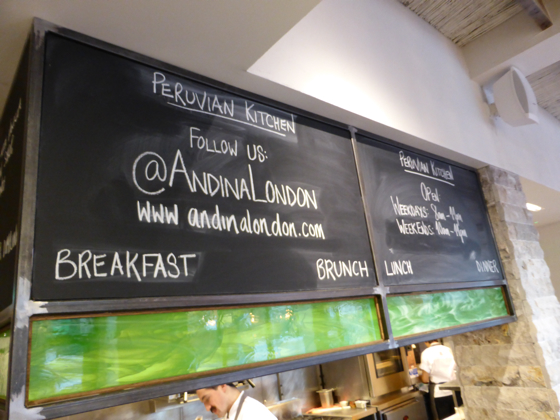 PERUVIAN KITCHEN
FOLLOW US:
@ANDINALONDON
www.andinalondon.com
BREAKFAST BRUNCH
PERUVIAN KITCHEN
OPEN
WEEKDAYS: 8am - 11pm
WEEKENDS: 10am - 11pm
LUNCH DINNER